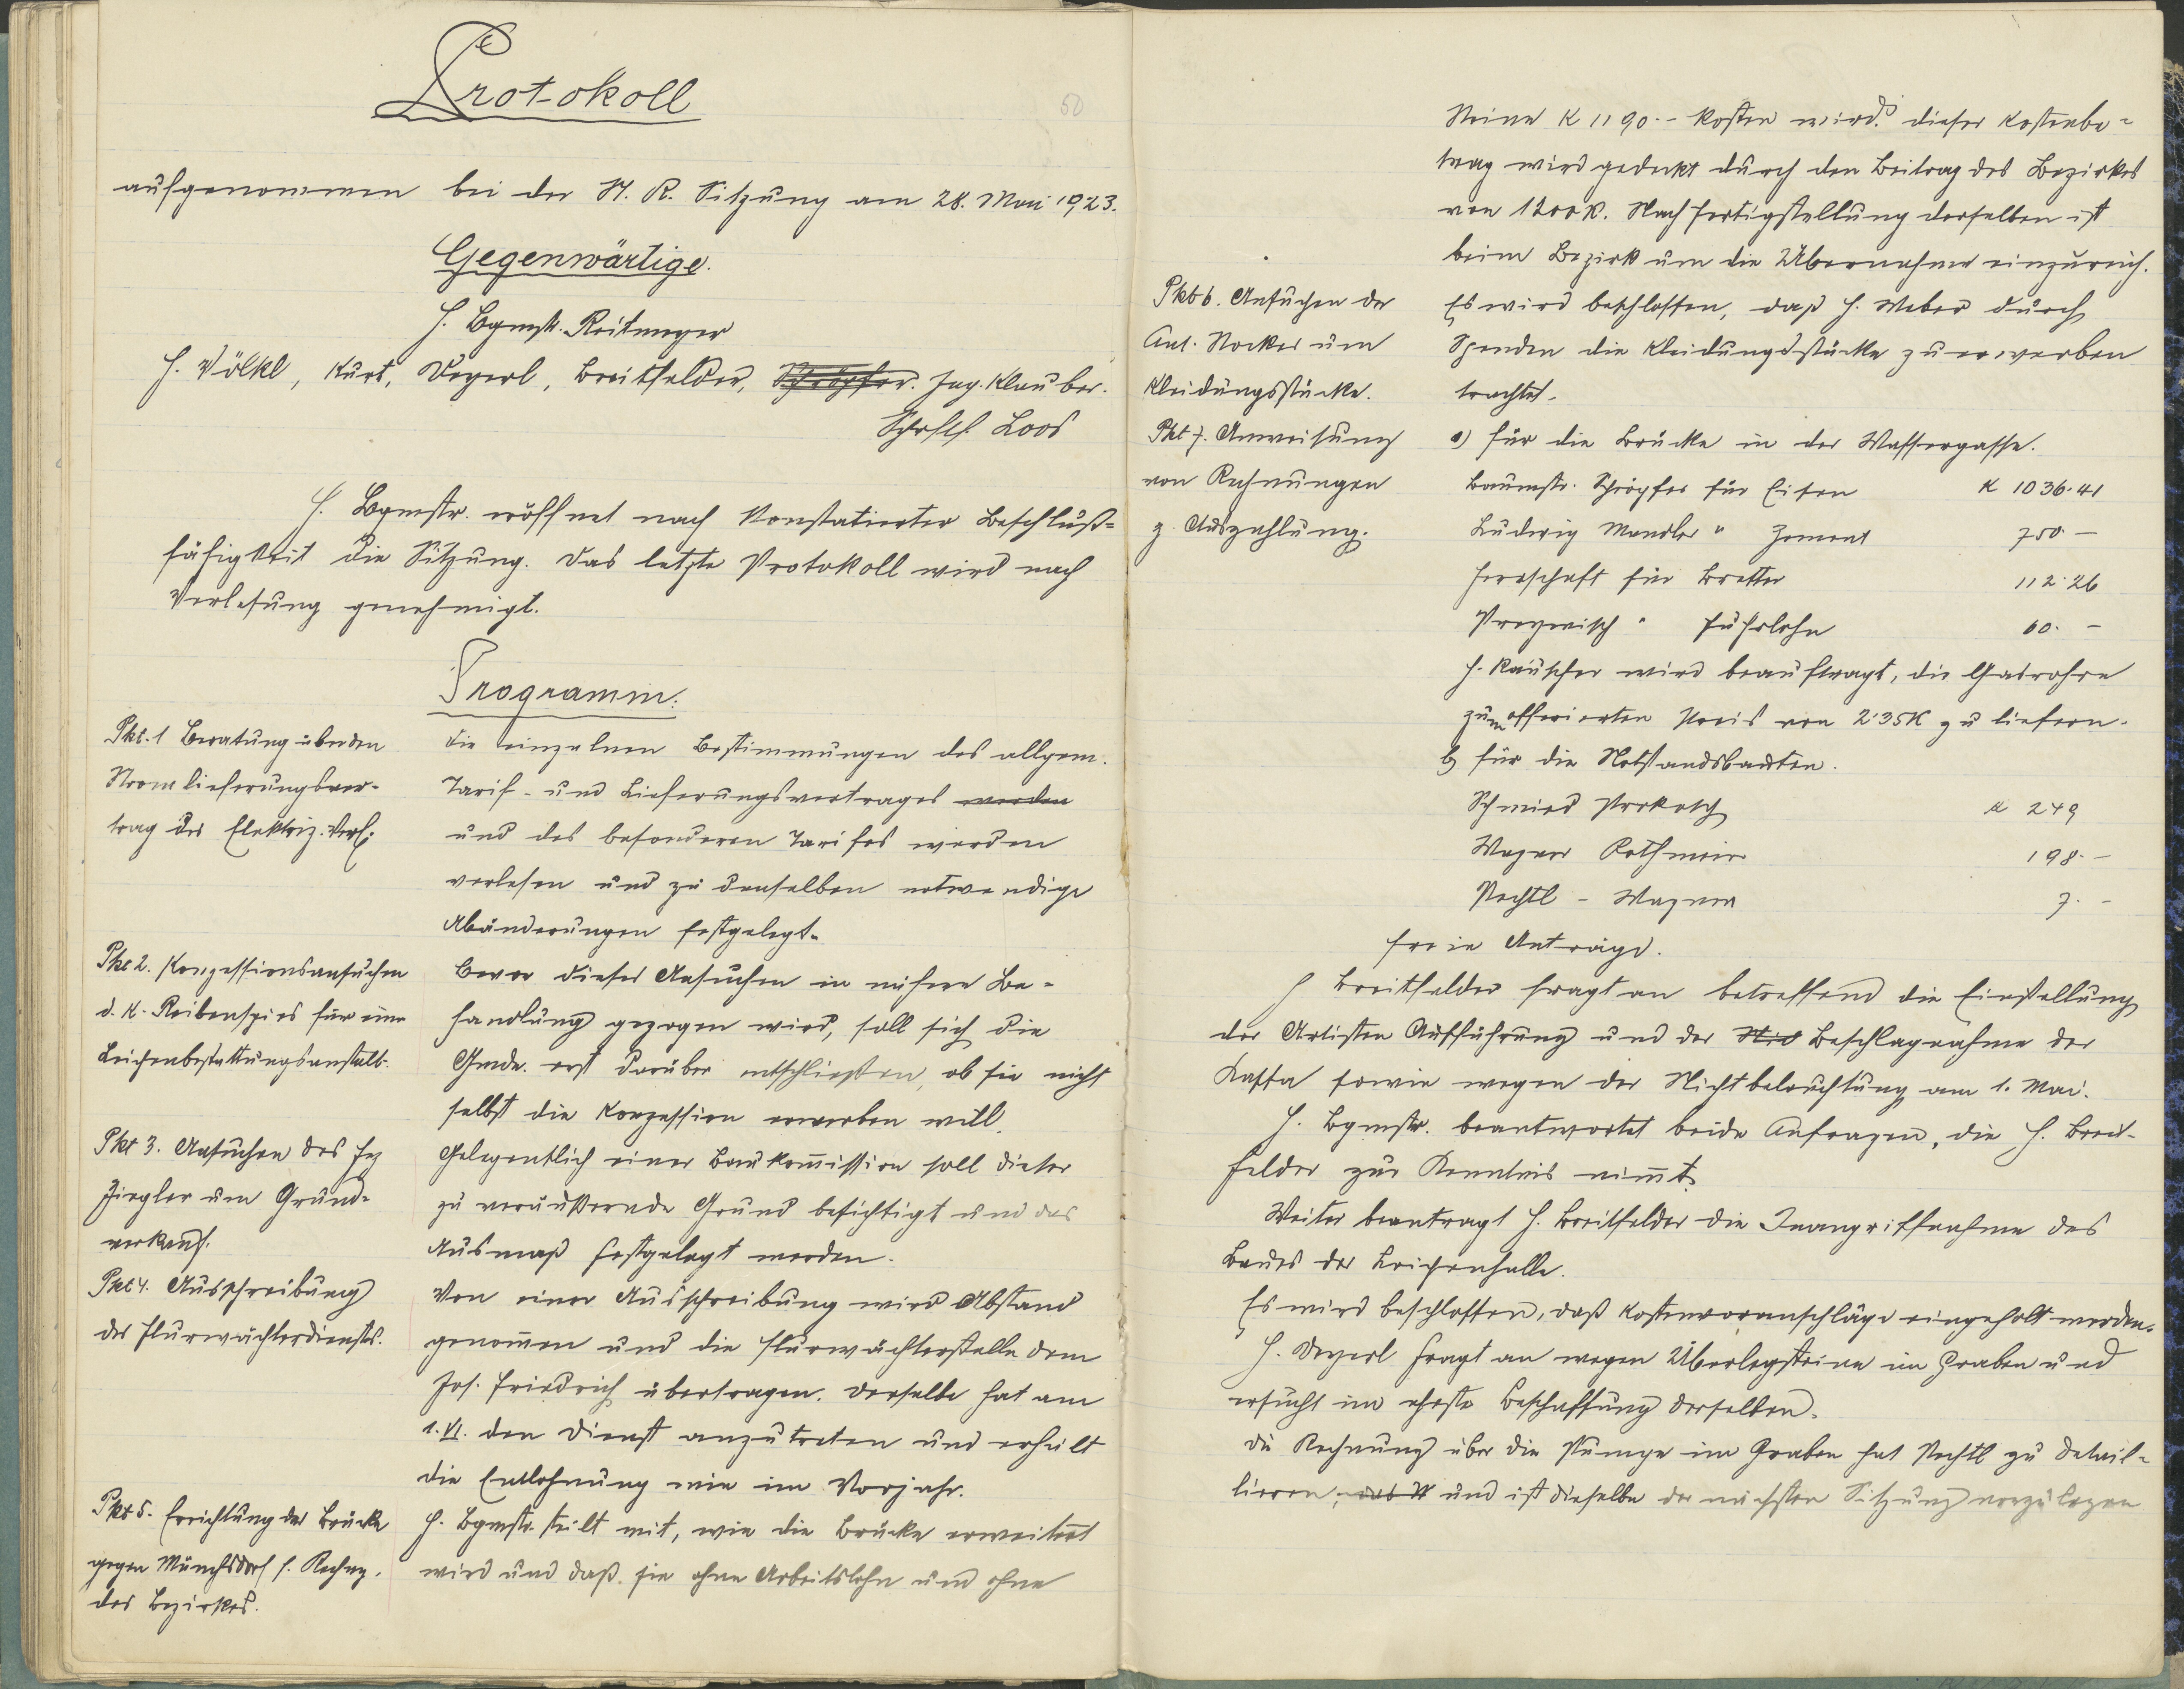 Protokoll
50
aufgenommen bei der St. R. Sitzung am 28. Mai 1923.
Gegenwärtige.
H. Bgmstr. Reitmeyer
H. Völkl, Kurt, Deyerl, Breitfelder, Schröpfer. Ing. Klauber.
Schrftf. Loos
H. Bgmstr. eröffnet nach konstatierter Beschluß=
fähigkeit die Sitzung. Das letzte Protokoll wird nach
Verlesung genehmigt.
Programm:
Pkt. 1 Beratung über den
Stromlieferungsver-
trag der Elektriz. Verf.
die einzelnen Bestimmungen des allgem.
Tarif- und Lieferungsvertrages werden
und des besonderen Tarifes werden
verlesen und zu denselben notwendige
Abänderungen festgelegt.
Pkt 2. Konzessionsansuchen
d. K. Reibenspies für eine
Leichenbestattungsanstalt.
Bevor dieses Ansuchen in nähere Be-
handlung gezogen wird, soll sich die
Gmde. erst darüber entschließen, ob sie nicht
selbst die Konzession erwerben will.
Pkt 3. Ansuchen des
Ziegler um Grund-
verkauf.
Gelegentlich einer Baukommission soll dieser
zu veräußernde Grund besichtigt und das
Ausmaß festgelegt werden.
Pkt 4. Ausschreibung
des Flurwächterdienstes.
Von einer Ausschreibung wird Abstand
genommen und die Flurwächterstelle dem
Jos. Friedrich übertragen. Derselbe hat am
1. VI. den Dienst anzutreten und erhält
die Entlohnung wie im Vorjahr.
Pkt 5. Errichtung der Brücke
gegen Münchsdorf f. Rechng.
des Bezirkes.
H. Bgmstr. teilt mit, wie die Brücke erweitert
wird und daß sie ohne Arbeitslohn und ohne
Steine K 1190.- kosten wird. Dieser Kostenbe-
trag wird gedeckt durch den Beitrag des Bezirkes
von 1200 K. Nach Fertigstellung derselben ist
beim Bezirk um die Übernahme einzureich.
Pkt 6. Ansuchen der
Ant. Stocker um
Kleidungsstücke.
Es wird beschlossen, daß H. Weber durch
Spenden die Kleidungsstücke zu erwerben
trachtet.
Pkt 7. Anweisung
von Rechnungen
z. Auszahlung.
a) für die Brücke in der Wassergasse.
Baumstr. Schröpfer für Eisen K 1036.41
Ludwig Mandler " Zement 750.-
Herrschaft für Bretter 112.26
" Fuhrlohn 60.-
H. Kauscher wird beauftragt, die Gasrohre
zum offerierten Preis von 2.35K zu liefern.
b) für die Notstandsbauten.
Schmied Prokosch K 249
Wagner Rothmeier 198.-
Pechtl - Wagner 7.-
Freie Anträge.
H Breitfelder fragt an betreffend die Einstellung
der Artisten Aufführung und der Beschlagnahme der
Kassa sowie wegen der Nichtbeleuchtung am 1. Mai.
H. Bgmstr. beantwortet beide Anfragen, die H. Breit-
felder zur Kenntnis nimmt.
Weiter beantragt H. Breitfelder die Inangriffnahme des
Baues der Leichenhalle.
Es wird beschlossen, daß Kostenvoranschläge eingeholt werden.
H. Deyerl fragt an wegen Überlegsteine im Graben und
ersucht um eheste Beschaffung derselben.
die Rechnung über die Pumpe im Graben hat Pechtl zu detail-
lieren, und ist dieselbe der nächsten Sitzung vorzulegen